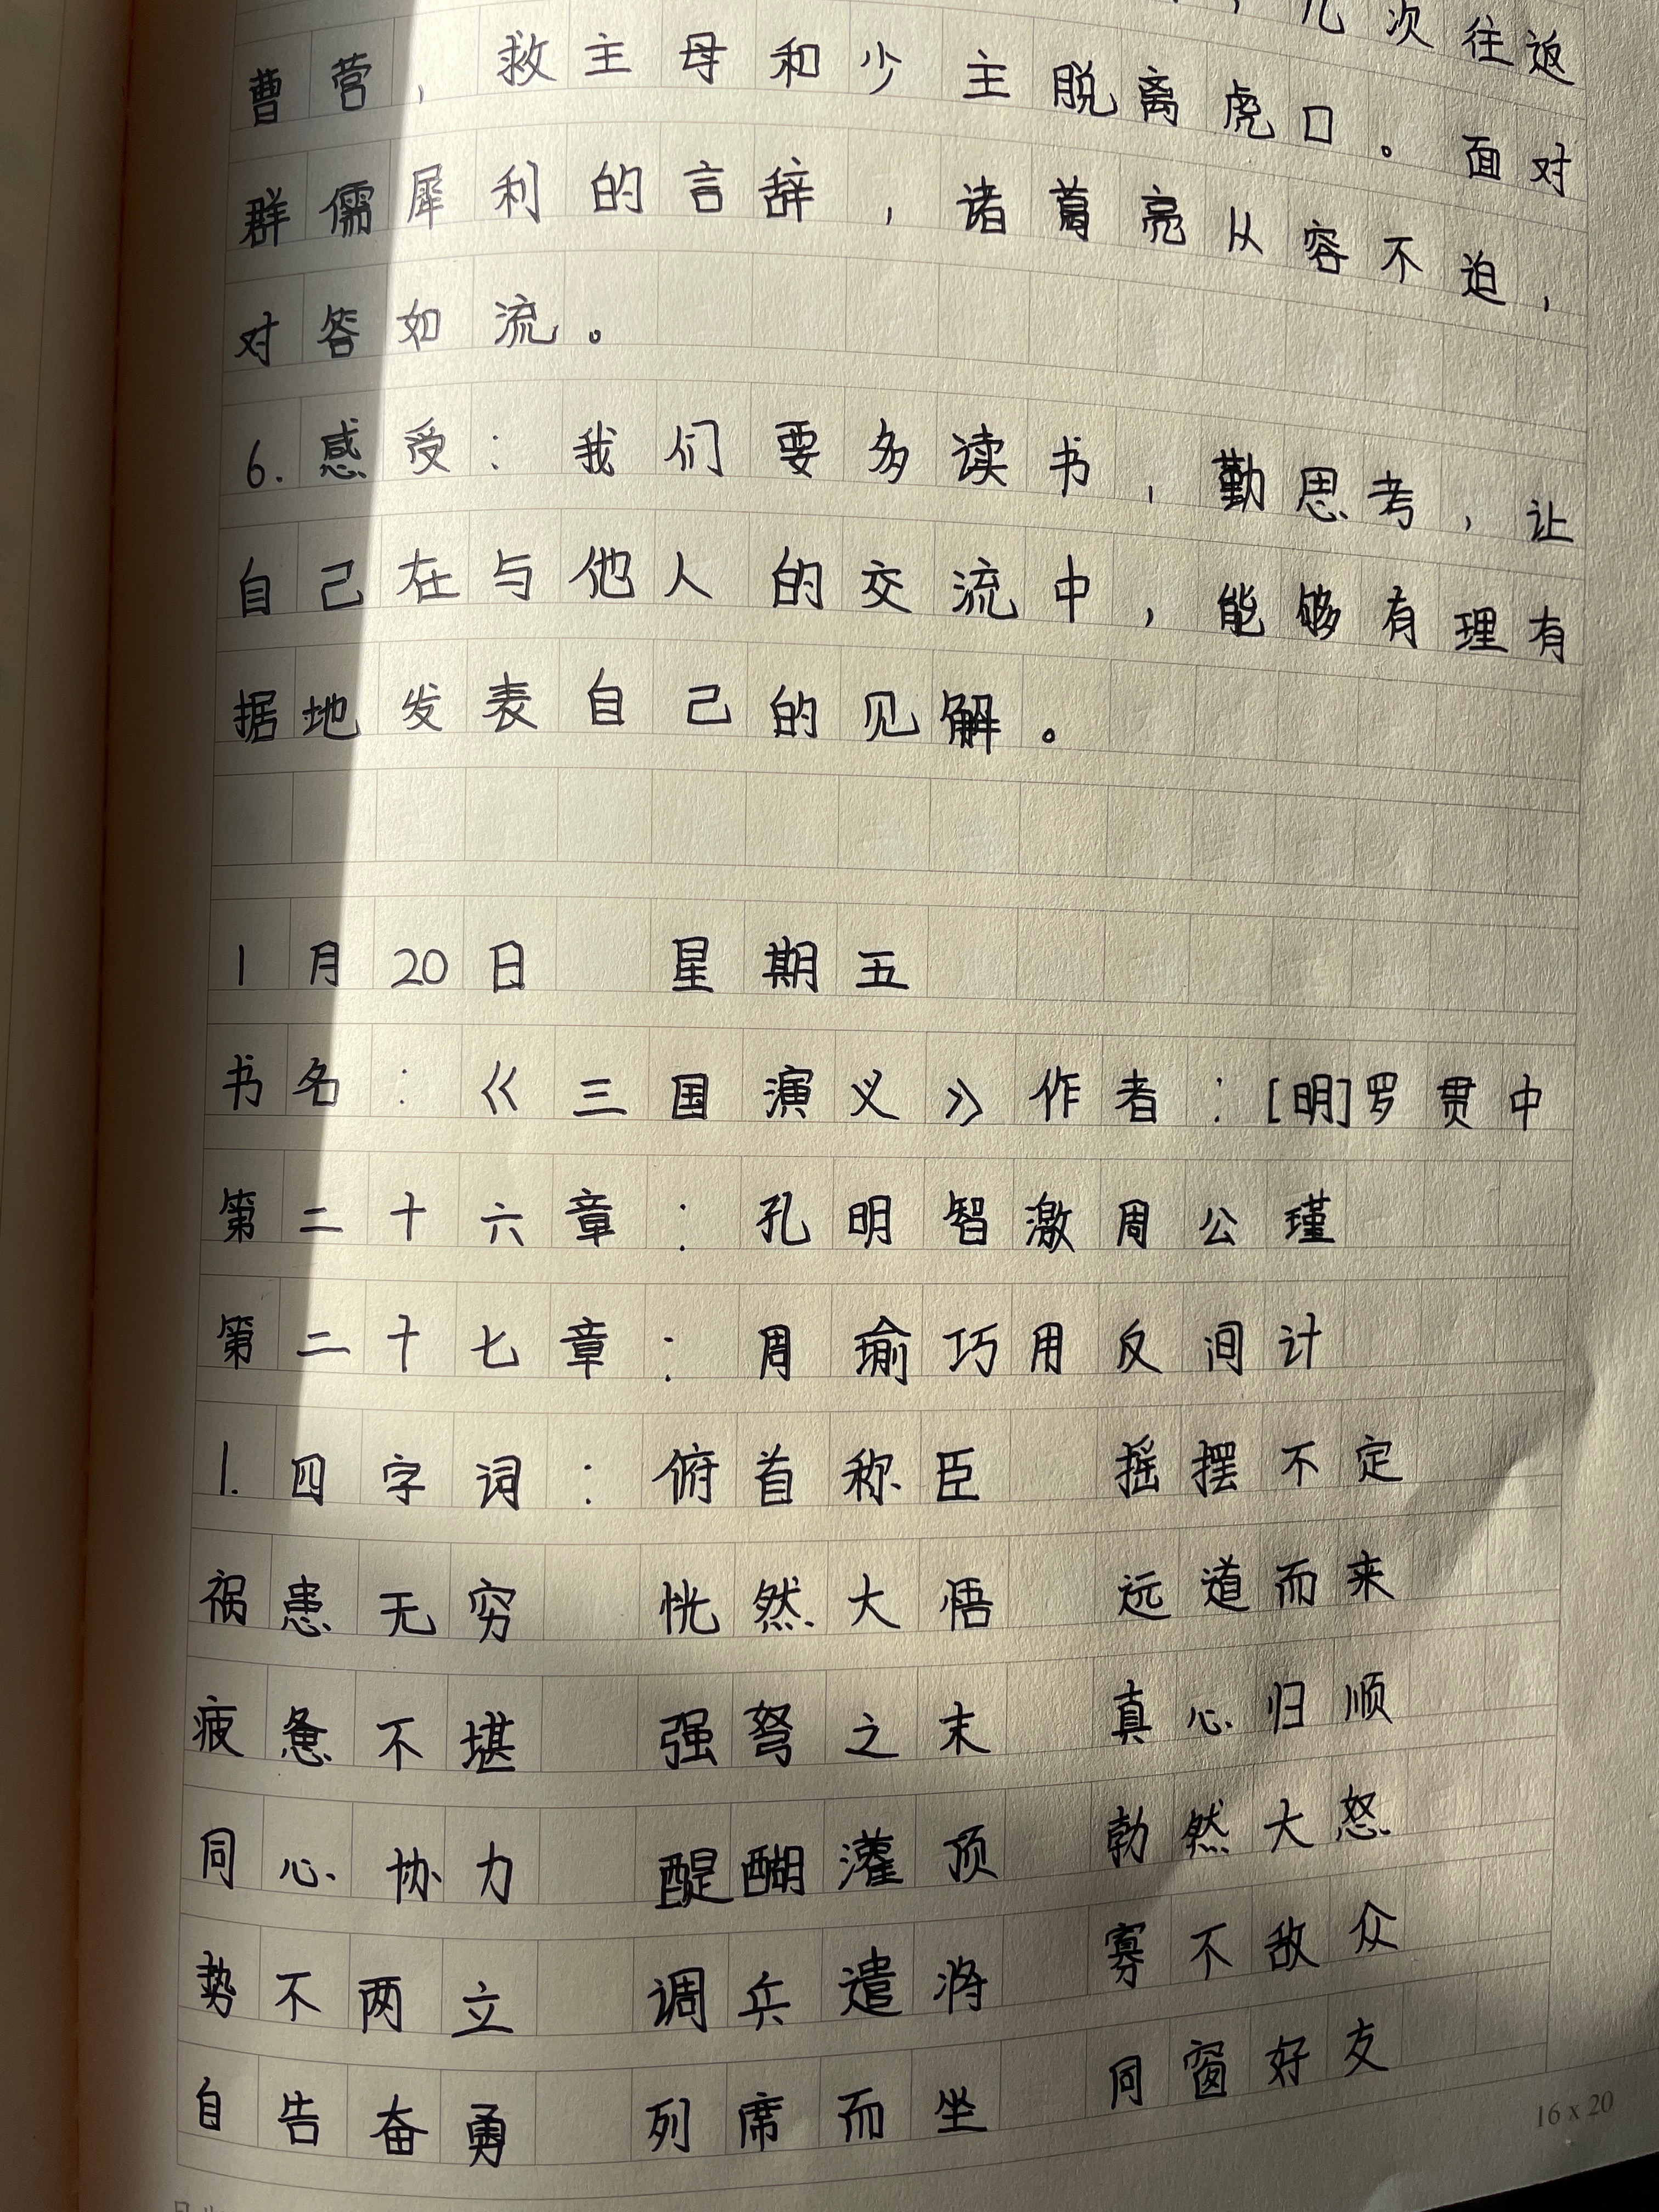 几次往返
曹营，救主母和少主脱离虎口。面对
群儒犀利的言辞，诸葛亮从容不迫，
对答如流。
6.感受：我们要多读书，勤思考，让
自己在与他人的交流中，能够有理有
据地发表自己的见解。
1月20日 星期五
书名：《三国演义》作者：[明]罗贯中
第二十六章：孔明智激周公瑾
第二十七章：周瑜巧用反间计
1.四字词：俯首称臣 摇摆不定
祸患无穷 恍然大悟 远道而来
疲惫不堪 强弩之末 真心归顺
同心协力 醍醐灌顶 勃然大怒
势不两立 调兵遣将 寡不敌众
自告奋勇 列席而坐 同窗好友
16 x 20